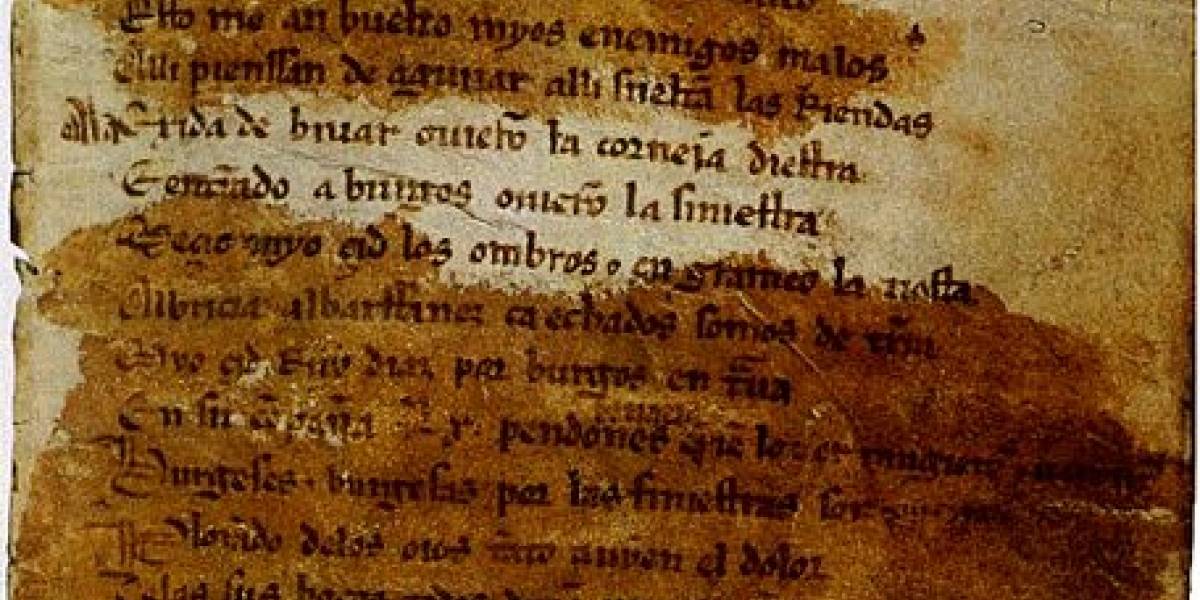 Esto me an buelto myos enemigos malos
Alli pienssan de aguijar alli sueltã las Riendas
Ala Exida de biuar ouierõ la corneja diestra
E entrãdo a burgos ouierõ la siniestra
Meçio myo çid los ombros e en grameo la tiesta
Albricia albarffanez ca echados somos de tr̃ra
Myo çid Ruy diaz por burgos en trãua
En su cõpaña Lx pendones
Burgeses burgesas por las finiestras son
Plorãdo delos oios tãto auyen el dolor
Delas sus bocas todos